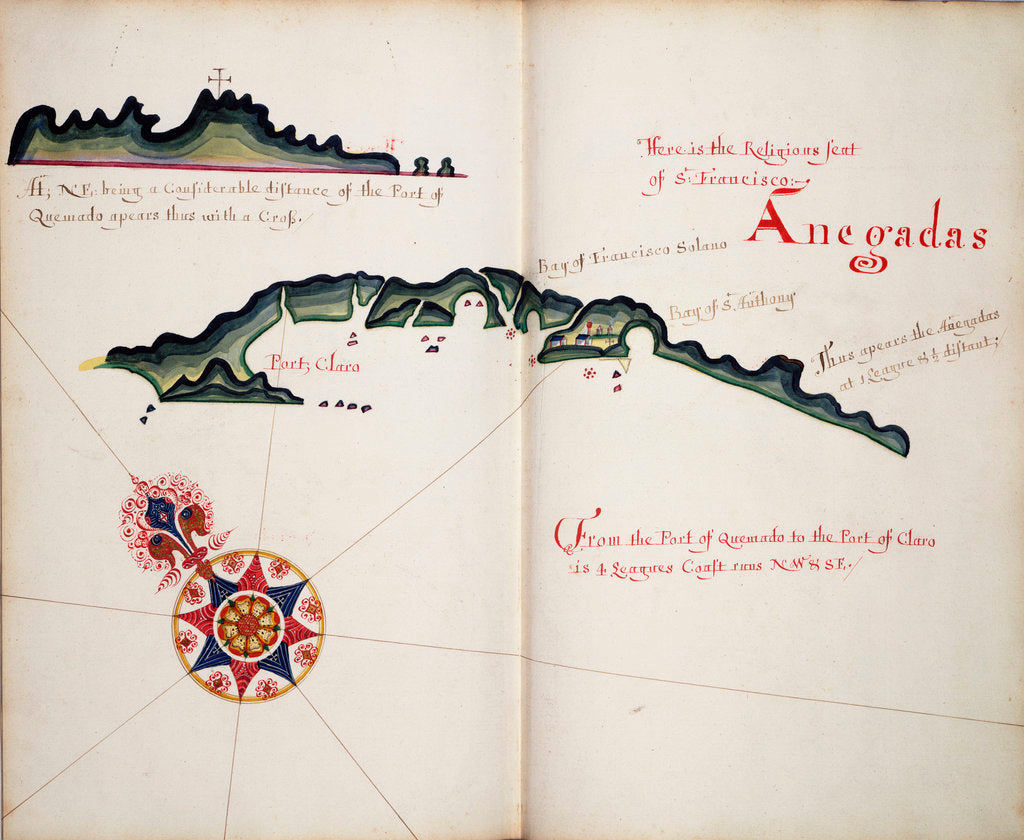 At; N E: being a Consiterable distance of the Port of
Quemado apears thus with a Cross.
Here is the Religious seat
of St. Francisco:
Anegadas
Bay of Francisco Solano
Bay of St. Anthony
Thus apears the Anegadas
at 1 League & ½ distant;
Port; Claro
From the Port of Quemado to the Port of Claro
is 4 Leagues Coast runs NW & SE.